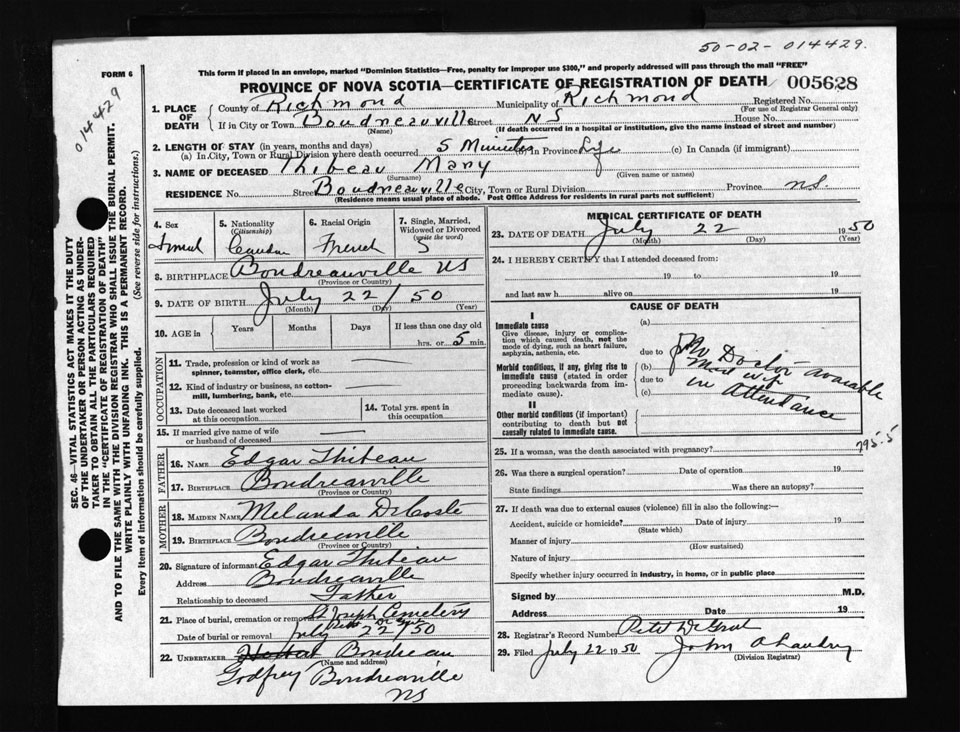 50-02-014429.
FORM 6
This form if placed in an envelope, marked "Dominion Statistics—Free, penalty for improper use $300," and properly addressed will pass through the mail "FREE"
PROVINCE OF NOVA SCOTIA—CERTIFICATE OF REGISTRATION OF DEATH 005628
014429
SEC. 46—VITAL STATISTICS ACT MAKES IT THE DUTY
OF THE UNDERTAKER OR PERSON ACTING AS UNDER-
TAKER TO OBTAIN ALL THE PARTICULARS REQUIRED
IN THE "CERTIFICATE OF REGISTRATION OF DEATH"
AND TO FILE THE SAME WITH THE DIVISION REGISTRAR WHO SHALL ISSUE THE BURIAL PERMIT.
WRITE PLAINLY WITH UNFADING INK. THIS IS A PERMANENT RECORD.
Every item of Information should be carefully supplied. (See reverse side for instructions.)
1. PLACE OF DEATH
County of Richmond Municipality of Richmond Registered No.
(For use of Registrar General only)
If in City or Town Boudreauville Street NS House No.
(Name) (If death occurred in a hospital or institution, give the name instead of street and number)
2. LENGTH OF STAY (in years, months and days)
(a) In City, Town or Rural Division where death occurred 5 Minutes (b) In Province Life (c) In Canada (if immigrant)
3. NAME OF DECEASED Thibeau Mary
(Surname) (Given name or names)
RESIDENCE No. Street Boudreauville City, Town or Rural Division Province NS.
(Residence means usual place of abode. Post Office Address for residents in rural parts not sufficient)
4. Sex 5. Nationality (Citizenship) 6. Racial Origin 7. Single, Married, Widowed or Divorced (write the word)
French S
8. BIRTHPLACE Boudreauville NS
(Province or Country)
9. DATE OF BIRTH July 22/50
(Month) (Day) (Year)
10. AGE in Years Months Days If less than one day old
hrs. or 5 min.
OCCUPATION
11. Trade, profession or kind of work as
spinner, teamster, office clerk, etc.
12. Kind of industry or business, as cotton-
mill, lumbering, bank, etc.
13. Date deceased last worked
at this occupation
14. Total yrs. spent in
this occupation
15. If married give name of wife
or husband of deceased
FATHER
16. NAME Edgar Thibeau
17. BIRTHPLACE Boudreauville
(Province or Country)
MOTHER
18. MAIDEN NAME Melanda DeCoste
19. BIRTHPLACE Boudreauville
(Province or Country)
20. Signature of informant Edgar Thibeau
Address Boudreauville
Relationship to deceased Father
21. Place of burial, cremation or removal St Joseph Cemetery
Petit De Grat
Date of burial or removal July 22/50
22. UNDERTAKER Boudreau
(Name and address)
Godfrey Boudreauville
NS
MEDICAL CERTIFICATE OF DEATH
23. DATE OF DEATH July 22 1950
(Month) (Day) (Year)
24. I HEREBY CERTIFY that I attended deceased from:
19 to 19
and last saw h alive on 19
CAUSE OF DEATH
I
Immediate cause
Give disease, injury or complica-
tion which caused death, not the
mode of dying, such as heart failure,
asphyxia, asthenia, etc.
Morbid conditions, if any, giving rise to
immediate cause (stated in order
proceeding backwards from im-
mediate cause).
II
Other morbid conditions (if important)
contributing to death but not
causally related to immediate cause.
(a)
due to
(b)
due to
(c)
No Doctor Avaiable
Mid wife
in Attendance
795.5
25. If a woman, was the death associated with pregnancy?
26. Was there a surgical operation? Date of operation 19
State findings Was there an autopsy?
27. If death was due to external causes (violence) fill in also the following:—
Accident, suicide or homicide? Date of injury 19
(State which)
Manner of injury
(How sustained)
Nature of injury
Specify whether injury occurred in industry, in home, or in public place
Signed by M.D.
Address Date 19
28. Registrar's Record Number Petit De Grat
29. Filed July 22 1950 John A Landry
(Division Registrar)